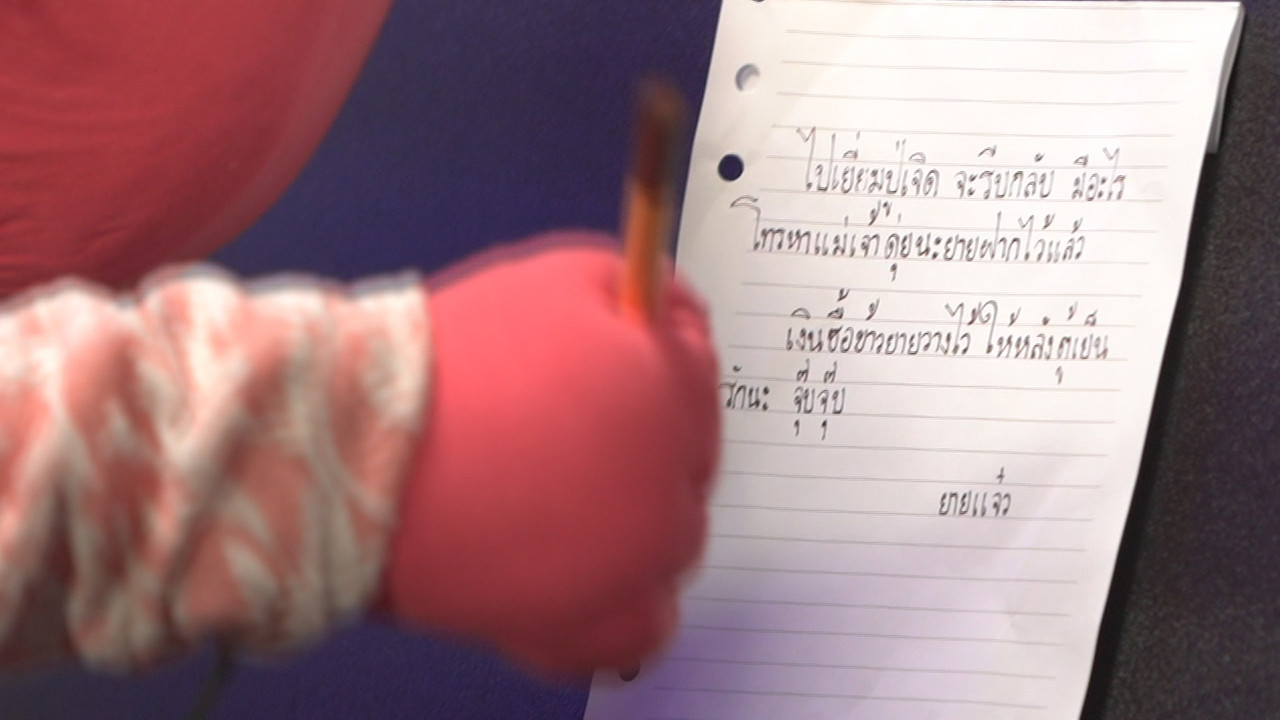 ไปเยี่ยมปู่เจิด จะรีบกลับ มีอะไร
โทรหาแม่เจ้าดุ่ยนะยายฝากไว้แล้ว
เงินซื้อข้าวยายวางไว้ให้หลังตู้เย็น
รักนะ จุ๊บจุ๊บ
ยายแจ๋ว